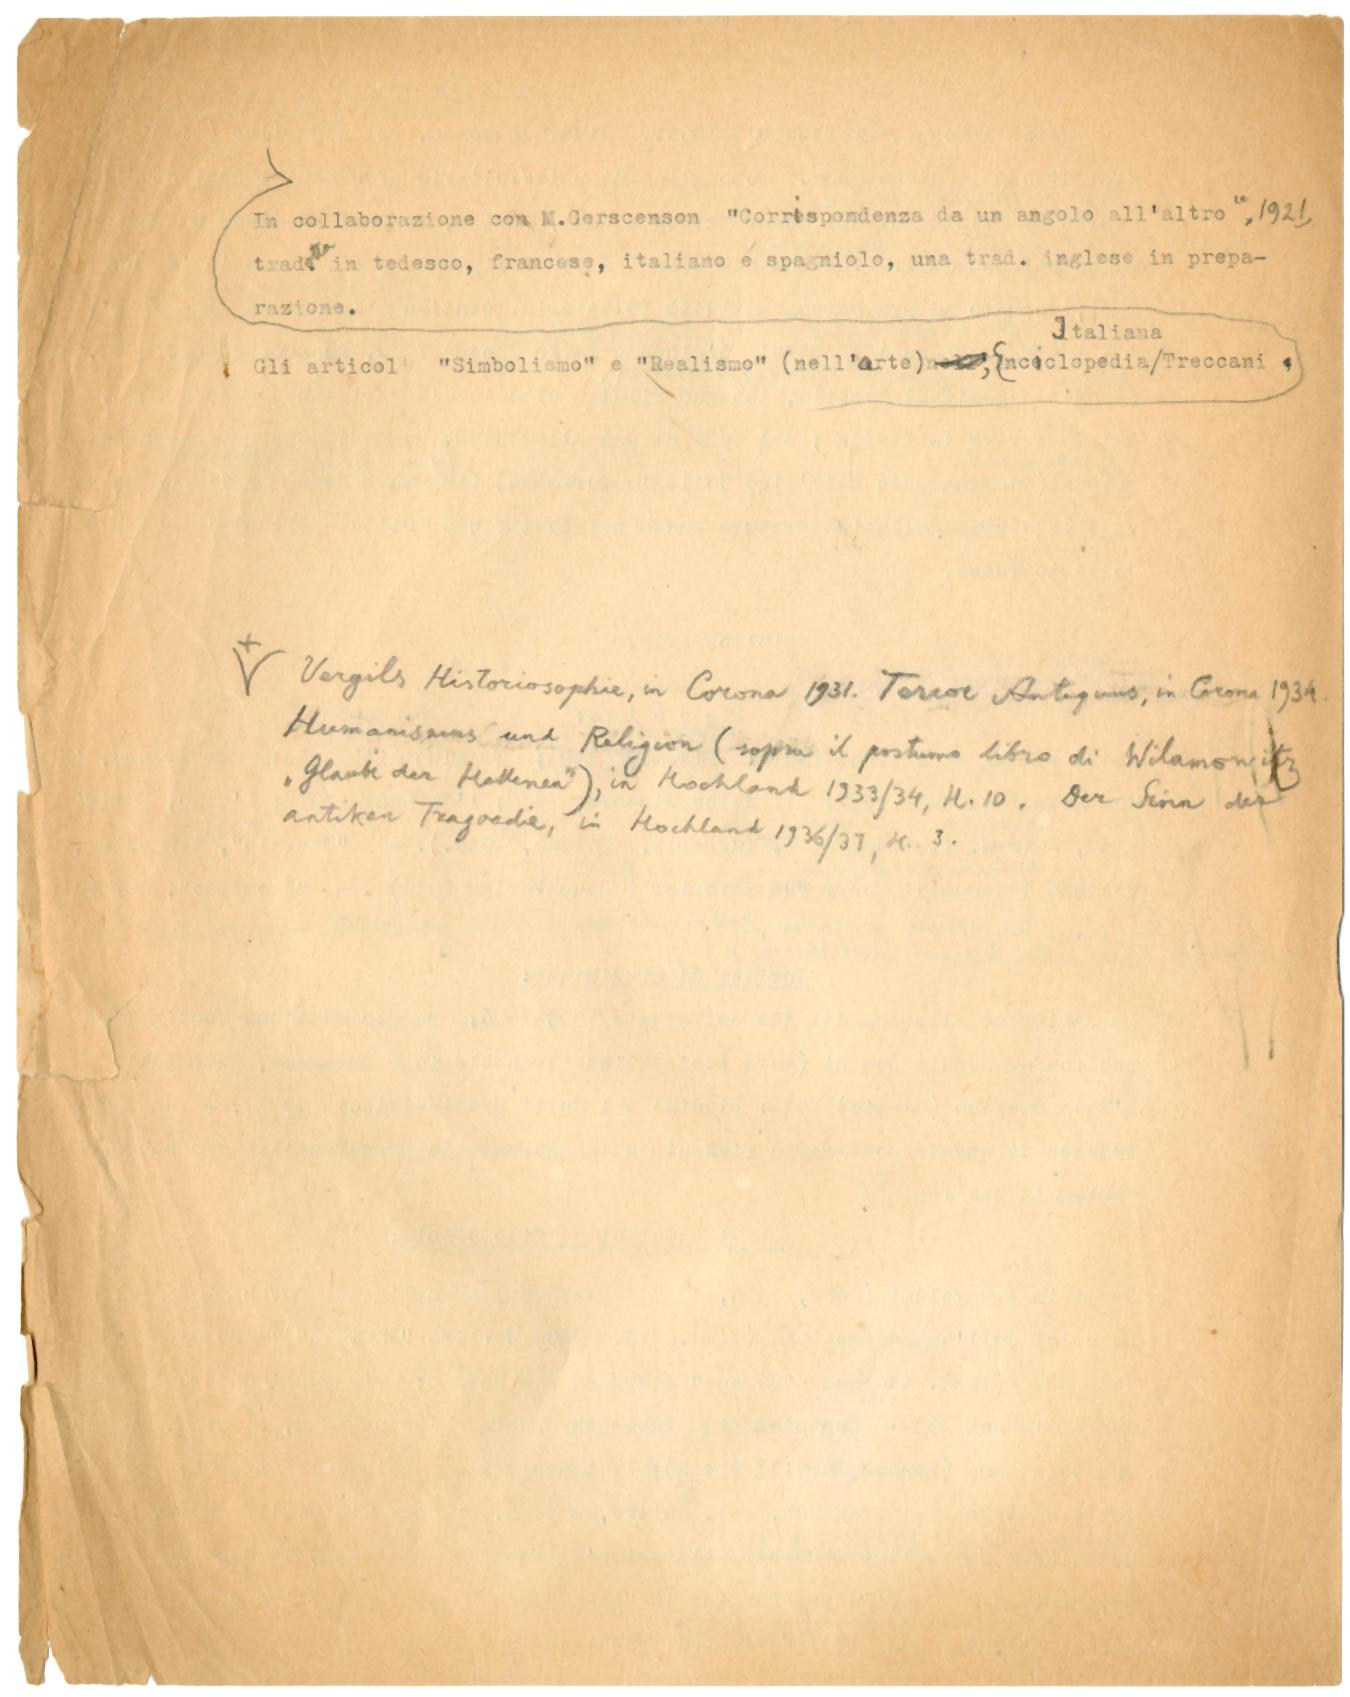 In collaborazione con M.Gerscenson "Corrispondenza da un angolo all'altro", 1921,
trad. in tedesco, francese, italiano e spagniolo, una trad. inglese in prepa-
razione.
Italiana
Gli articol "Simbolismo" e "Realismo" (nell'arte), Enciclopedia/Treccani .
+
V Vergils Historiosophie, in Corona 1931. Terror Antiquus, in Corona 1934.
Humanismus und Religion (sopra il postumo libro di Wilamowitz
„Glaube der Hellenen"), in Hochland 1933/34, H. 10. Der Sinn der
antiken Tragoedie, in Hochland 1936/37, H. 3.